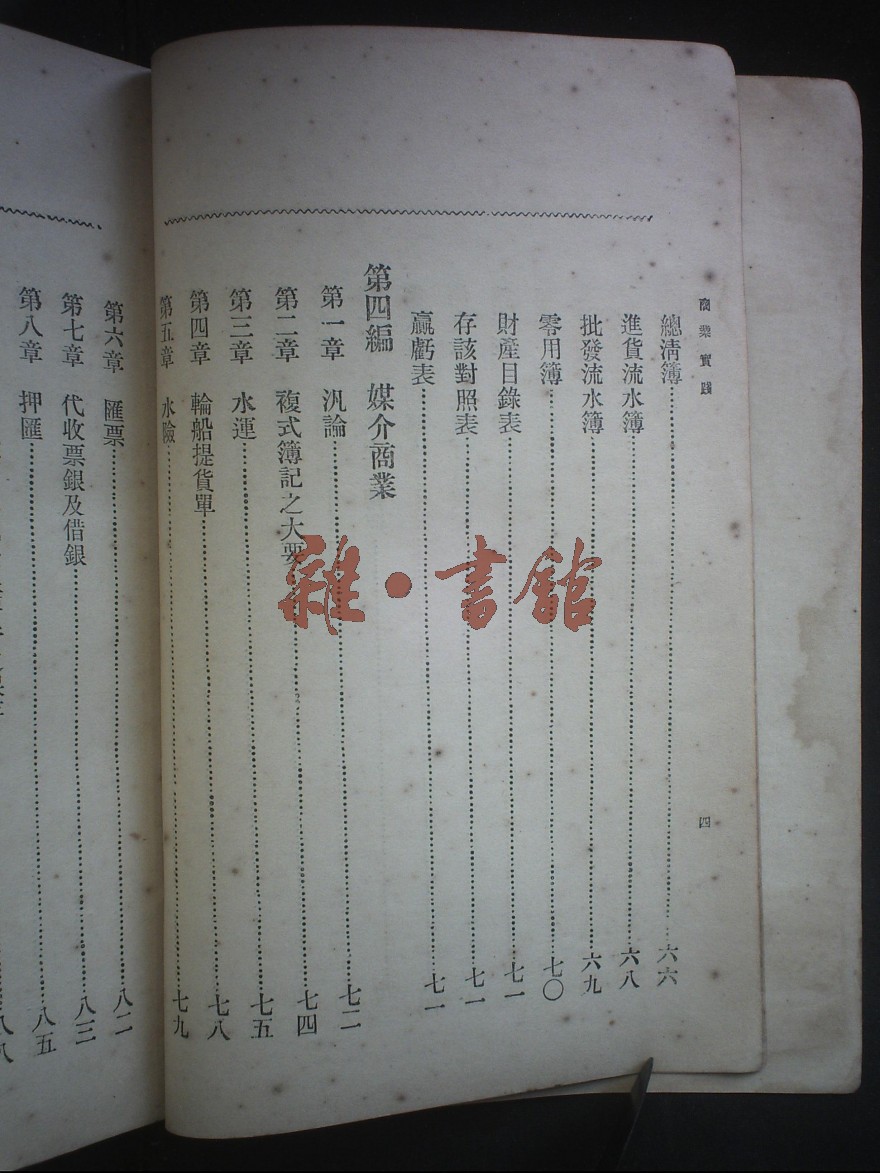 商業實踐 四
總清簿……六六
進貨流水簿……六八
批發流水簿……六九
零用簿……七〇
財產目錄表……七一
存該對照表……七一
贏虧表……七一
第四編 媒介商業
第一章 汎論……七二
第二章 複式簿記之大要……七四
第三章 水運……七五
第四章 輪船提貨單……七八
第五章 水險……七九
第六章 匯票……八二
第七章 代收票銀及借銀……八三
第八章 押匯……八五
雜·書館